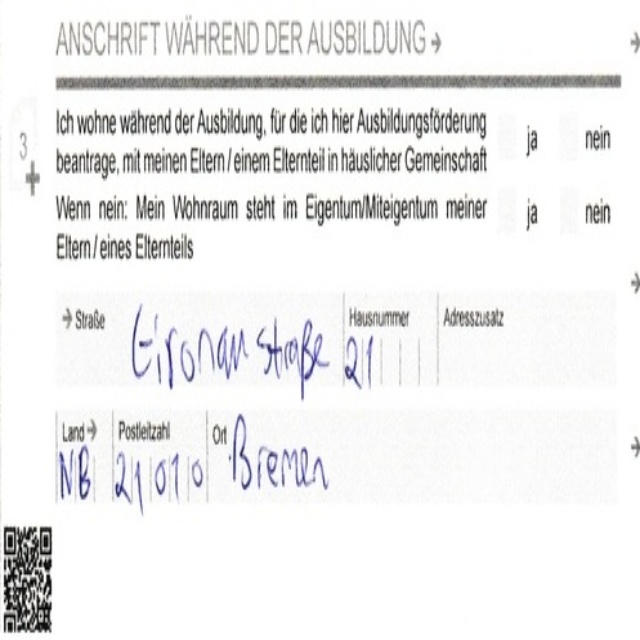 ANSCHRIFT WÄHREND DER AUSBILDUNG →
3
Ich wohne während der Ausbildung, für die ich hier Ausbildungsförderung ja nein
beantrage, mit meinen Eltern / einem Elternteil in häuslicher Gemeinschaft
Wenn nein: Mein Wohnraum steht im Eigentum/Miteigentum meiner ja nein
Eltern / eines Elternteils
→ Straße Hausnummer Adresszusatz
straße 21
Land → Postleitzahl Ort
NB 21010 Bremen